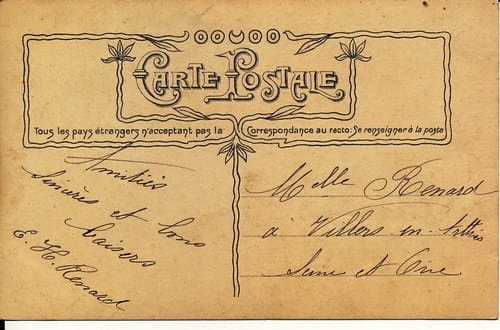 CARTE POSTALE
Tous les pays étrangers n'acceptant pas la Correspondance au recto: Se renseigner à la poste
Amitiés
Sincères et bons
baisers
E. H. Renard
Melle Renard
à Villers en
Seine et Oise